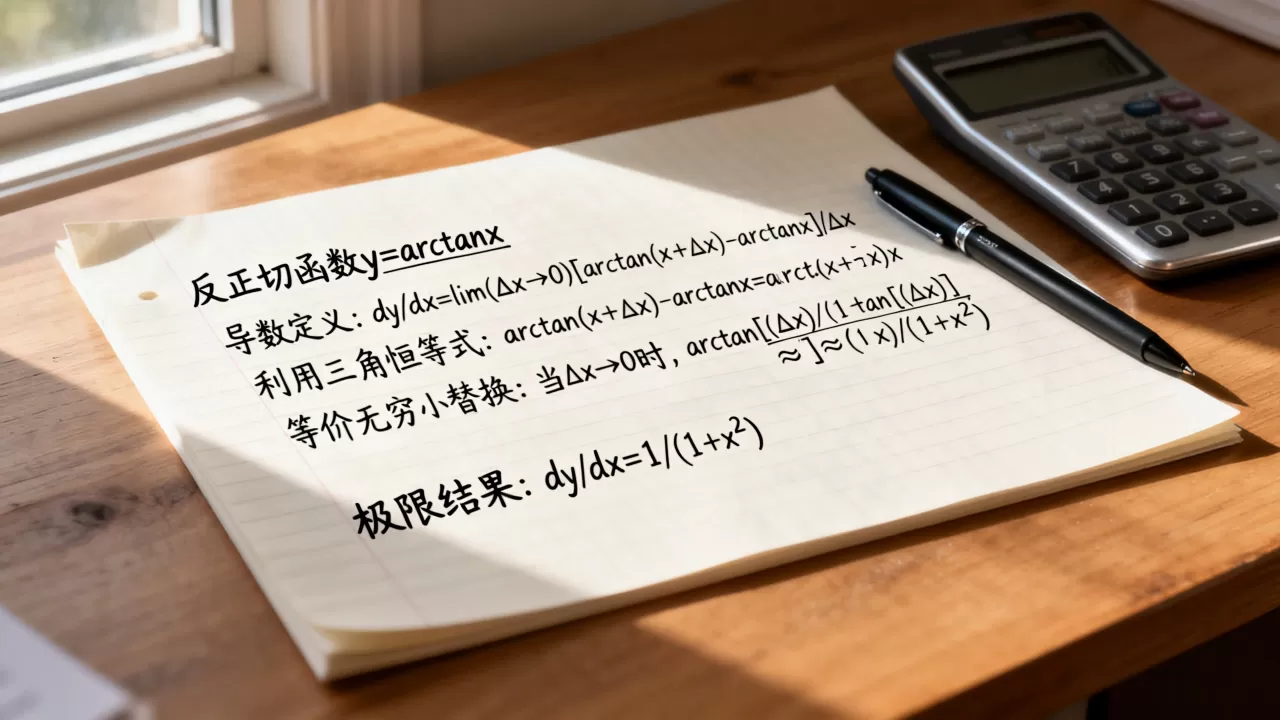 反正切函数y=arctanx
导数定义: dy/dx=lim(Δx→0)[arctan(x+Δx)-arctanx]/Δx
利用三角恒等式: arctan(x+Δx)-arctanx=arct(x+x)x
等价无穷小替换: 当Δx→0时, arctan[(Δx)/(1 tan[(Δx)]
≈ ]≈(1 x)/(1+x²)
极限结果: dy/dx=1/(1+x²)
7 8 9
4 5 6
1 2 3
0